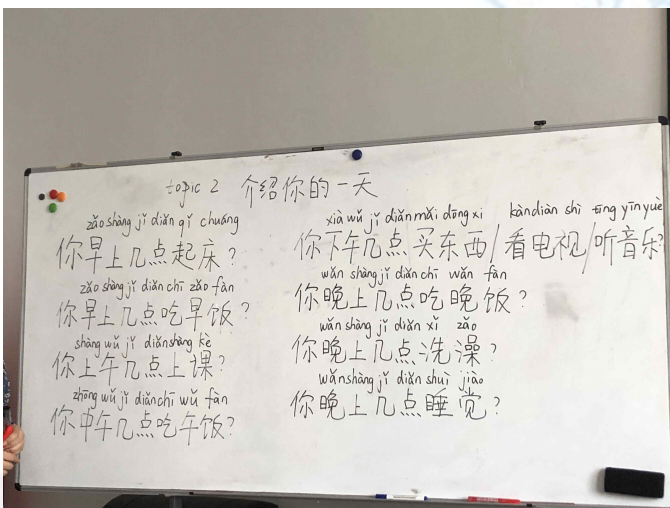 topic 2 介绍你的一天
zǎo shàng jǐ diǎn qǐ chuáng
你早上几点起床?
zǎo shàng jǐ diǎn chī zǎo fàn
你早上几点吃早饭?
shàng wǔ jǐ diǎn shàng kè
你上午几点上课?
zhōng wǔ jǐ diǎn chī wǔ fàn
你中午几点吃午饭?
xià wǔ jǐ diǎn mǎi dōng xi kàn diàn shì tīng yīn yuè
你下午几点买东西/看电视/听音乐?
wǎn shàng jǐ diǎn chī wǎn fàn
你晚上几点吃晚饭?
wǎn shàng jǐ diǎn xǐ zǎo
你晚上几点洗澡?
wǎn shàng jǐ diǎn shuì jiào
你晚上几点睡觉?